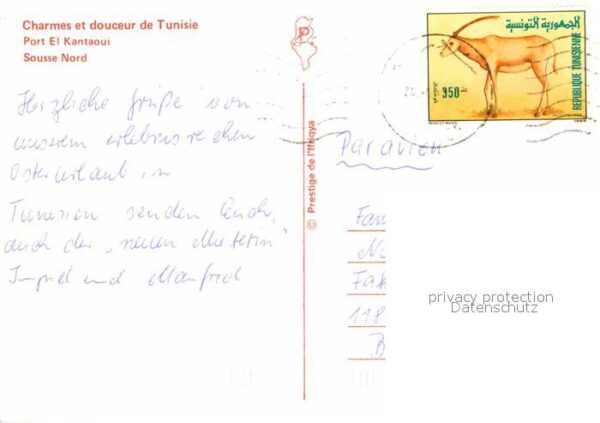 Charmes et douceur de Tunisie
Port El Kantaoui
Sousse Nord
Herzliche Grüße von
unserem erlebnisreichen
Osterurlaub in
Tunesien senden Euch,
auch der „neuen Mieterin“
Ingrid und Manfred
© Prestige de l'Ifriqya
الجمهورية التونسية
REPUBLIQUE TUNISIENNE
350
Par avion
Fam
Fah
118
B
privacy protection
Datenschutz